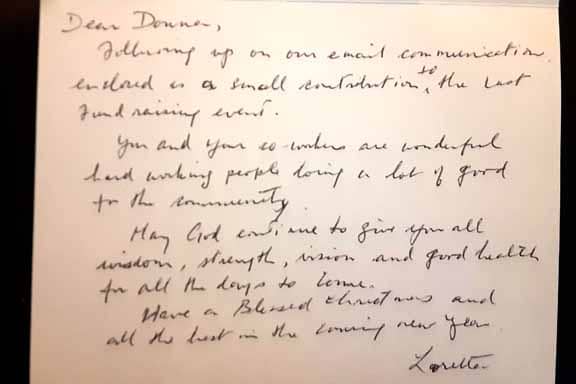 Dear Donna,
Following up on our email communication,
enclosed is a small contribution to the last
fund raising event.
You and your co-workers are wonderful
hard working people doing a lot of good
for the community.
May God continue to give you all
wisdom, strength, vision and good health
for all the days to come.
Have a Blessed Christmas and
all the best in the coming new year.
Loretta